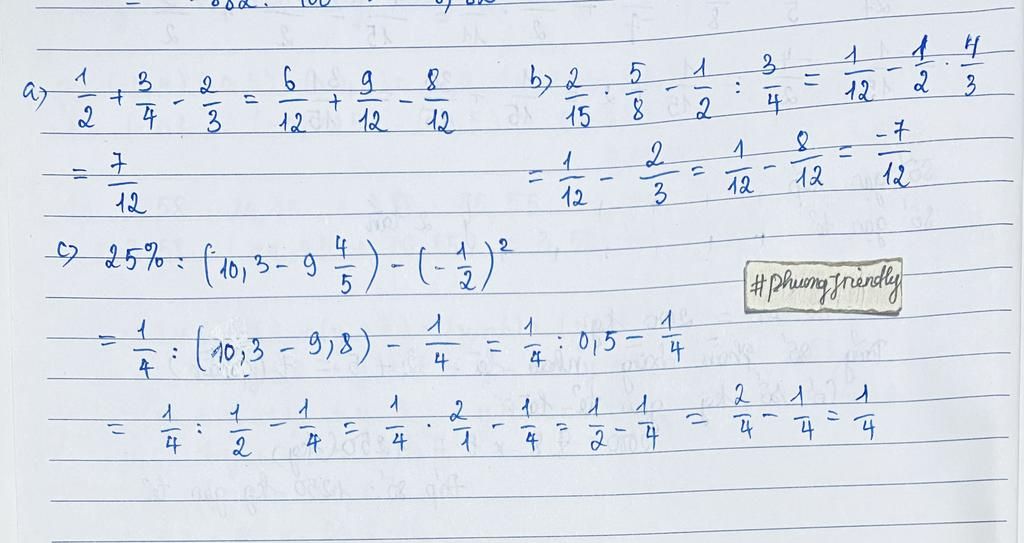 a) 1/2 + 3/4 - 2/3 = 6/12 + 9/12 - 8/12
= 7/12
b) 2/15 . 5/8 - 1/2 : 3/4 = 1/12 - 1/2 . 4/3
= 1/12 - 2/3 = 1/12 - 8/12 = -7/12
c) 25% : (10,3 - 9 4/5) - (-1/2)²
#phuongfriendly
= 1/4 : (10,3 - 9,8) - 1/4 = 1/4 : 0,5 - 1/4
= 1/4 : 1/2 - 1/4 = 1/4 . 2/1 - 1/4 = 1/2 - 1/4 = 2/4 - 1/4 = 1/4